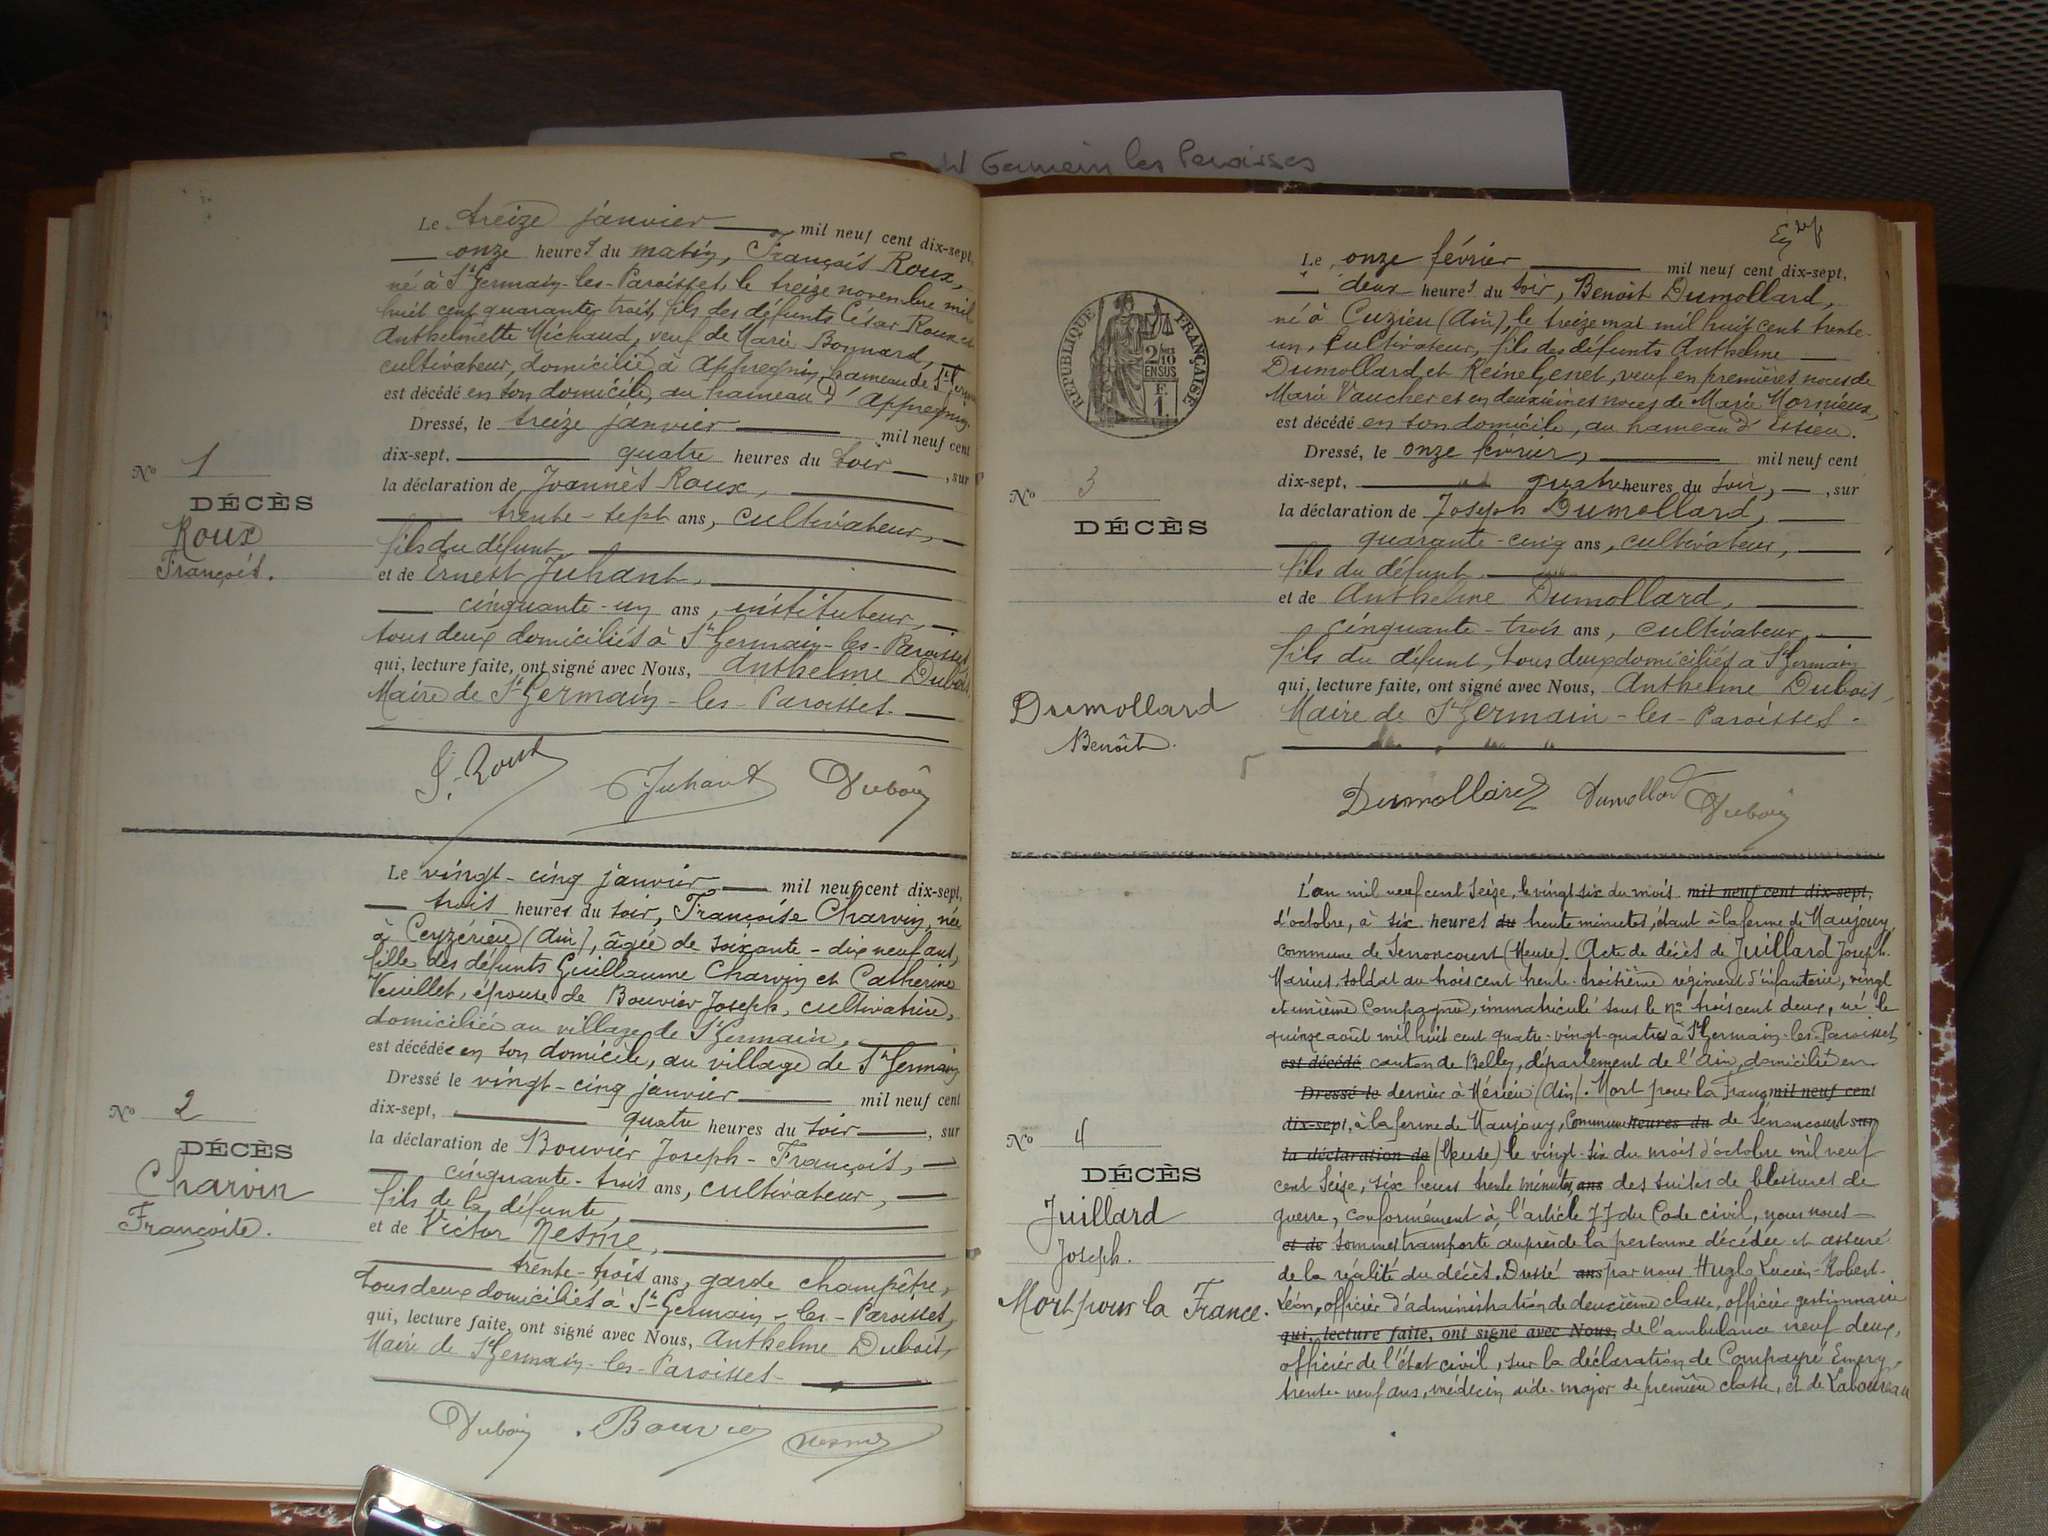 St Germain les Paroisses
Le treize janvier mil neuf cent dix-sept,
onze heures du matin, François Roux,
né à St Germain-les-Paroisses, le treize novembre mil
huit cent quarante trois, fils des défunts César Roux et
Anthelmette Michaud, veuf de Marie Bonnard,
cultivateur, domicilié à Appregnin, hameau de St Germain
est décédé en son domicile, au hameau d'Appregnin.
Dressé, le treize janvier mil neuf cent
dix-sept, quatre heures du soir, sur
la déclaration de Joannès Roux,
trente-sept ans, cultivateur,
fils du défunt,
et de Ernest Juhant,
cinquante-un ans, instituteur,
tous deux domiciliés à St Germain-les-Paroisses
qui, lecture faite, ont signé avec Nous, Anthelme Dubois,
Maire de St Germain-les-Paroisses.
N° 1
DÉCÈS
Roux
François.
J. Roux Juhant Dubois
Le vingt-cinq janvier mil neuf cent dix-sept,
trois heures du soir, Françoise Charvin, née
à Ceyzérieu (Ain), âgée de soixante-dix neuf ans,
fille des défunts Guillaume Charvin et Catherine
Veuillet, épouse de Bouvier Joseph, cultivatrice,
domiciliée au village de St Germain,
est décédée en son domicile, au village de St Germain
Dressé le vingt-cinq janvier mil neuf cent
dix-sept, quatre heures du soir, sur
la déclaration de Bouvier Joseph-François,
cinquante-trois ans, cultivateur,
fils de la défunte,
et de Victor Nesme,
trente-trois ans, garde champêtre,
tous deux domiciliés à St Germain-les-Paroisses,
qui, lecture faite, ont signé avec Nous, Anthelme Dubois,
Maire de St Germain-les-Paroisses
N° 2
DÉCÈS
Charvin
Françoise.
Dubois Bouvier Nesme
RÉPUBLIQUE FRANÇAISE
2/10
EN SUS
1 F.
Le onze février mil neuf cent dix-sept,
deux heures du soir, Benoit Dumollard,
né à Cuzieu (Ain), le treize mai mil huit cent trente-
un, cultivateur, fils des défunts Anthelme
Dumollard et Reine Genet, veuf en premières noces de
Marie Vaucher et en deuxièmes noces de Marie Mornieux,
est décédé en son domicile, au hameau d'Essieu.
Dressé, le onze février, mil neuf cent
dix-sept, quatre heures du soir, sur
la déclaration de Joseph Dumollard,
quarante-cinq ans, cultivateur,
fils du défunt
et de Anthelme Dumollard,
cinquante-trois ans, cultivateur,
fils du défunt, tous deux domiciliés à St Germain
qui, lecture faite, ont signé avec Nous, Anthelme Dubois,
Maire de St Germain-les-Paroisses.
N° 3
DÉCÈS
Dumollard
Benoît.
Dumollard Dumollard Dubois
L'an mil neuf cent seize, le vingt six du mois mil neuf cent dix-sept,
d'octobre, à six heures du trente minutes, étant à la ferme de Maujouy,
commune de Senoncourt (Meuse). Acte de décès de Juillard Joseph-
Marius, soldat au trois cent trente-troisième régiment d'infanterie, vingt
et unième compagnie, immatriculé sous le n° trois cent deux, né le
quinze août mil huit cent quatre-vingt-quatre à St Germain-les-Paroisses
est décédé canton de Belley, département de l'Ain, domicilié en
Dressé le dernier à Mérieu (Ain). Mort pour la France mil neuf cent
dix-sept, à la ferme de Maujouy, Commune heures du de Senoncourt sur
la déclaration de (Meuse) le vingt-six du mois d'octobre mil neuf
cent seize, six heures trente minutes, ans des suites de blessures de
guerre, conformément à l'article 77 du Code civil, nous nous
et de sommes transporté auprès de la personne décédée et assuré
de la réalité du décès. Dressé ans par nous Huglo Lucien-Robert-
Léon, officier d'administration de deuxième classe, officier gestionnaire
qui, lecture faite, ont signé avec Nous, de l'ambulance neuf deux,
officier de l'état civil, sur la déclaration de Compayré Emery,
trente-neuf ans, médecin aide-major de première classe, et de Laboureau
N° 4
DÉCÈS
Juillard
Joseph.
Mort pour la France.